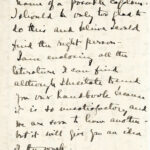 name of a possible captain.
I should be only too glad to
do this and please would
find the right person.
I am enclosing all the
literature I can find
although I hesitate to send
you our handbook because
it is so unsatisfactory and
we are soon to have another -
but it will give you an idea
of the work.